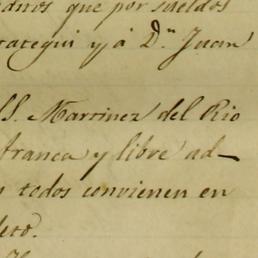 que por sueldos
rategui y á D.ⁿ Juan
SS. Martinez del Rio
franca y libre ad-
todos convienen en